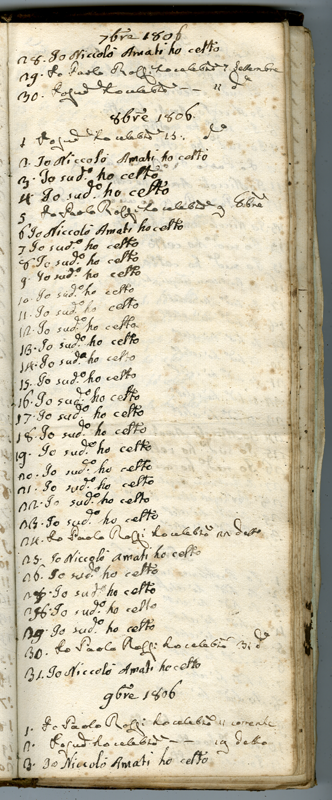 7bre 1806
28. Io Niccolò Amati ho celto
29. Io Paolo Rossi ho celebto 7 Settembre
30. ho celebto — 11 do
8bre 1806
1. ho celebto 15. do
2. Io Niccolò Amati ho celto
3. Io sudo. ho celto
4. Io sudo. ho celto
5. Io Paolo Rossi ho celebto 9 8bre
6. Io Niccolò Amati ho celto
7. Io sudo. ho celto
8. Io sudo. ho celto
9. Io sudo. ho celto
10. Io sudo. ho celto
11. Io sudo. ho celto
12. Io sudo. ho celto
13. Io sudo. ho celto
14. Io sudo. ho celto
15. Io sudo. ho celto
16. Io sudo. ho celto
17. Io sudo. ho celto
18. Io sudo. ho celto
19. Io sudo. ho celto
20. Io sudo. ho celto
21. Io sudo. ho celto
22. Io sudo. ho celto
23. Io sudo. ho celto
24. Io Paolo Rossi ho celebto 22 detto
25. Io Niccolò Amati ho celto
26. Io sudo. ho celto
Io sudo. ho celto
Io sudo. ho celto
29. Io sudo. ho celto
30. Io Paolo Rossi ho celebto 31 do
31. Io Niccolò Amati ho celto
9bre 1806
1. Io Paolo Rossi ho celebto 11 corrente
2. ho celebto — 19 detto
3. Io Niccolò Amati ho celto